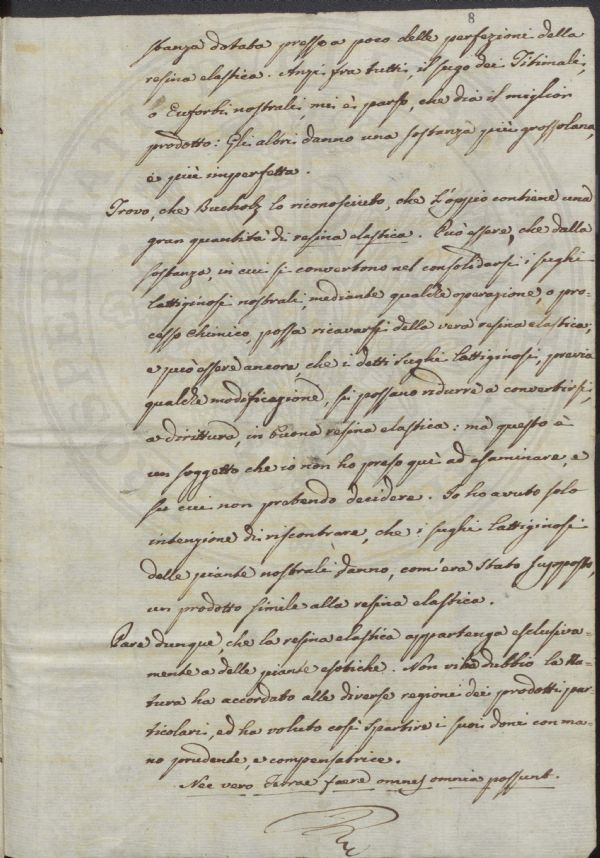 8
stanza dotata presso a poco delle perfezioni della
resina elastica. Anzi fra tutti, il sugo dei Titimali,
o Euforbi nostrali, mi è parso, che dia il miglior
prodotto: Gli altri danno una sostanza più grossolana,
e più imperfetta.
Trovo, che Bucholz lo riconosciuto, che l'oppio contiene una
gran quantità di resina elastica. Può essere, che dalla
sostanza, in cui si convertono nel consolidarsi i sughi
lattiginosi nostrali, mediante qualche operazione, o pro-
cesso Chimico, possa ricavarsi della vera resina elastica;
e può essere ancora, che i detti sughi lattiginosi, previa
qualche modificazione, si possano ridurre a convertirsi,
a dirittura, in buona resina elastica: ma questo è
un soggetto che io non ho preso quì ad esaminare, e
su cui non pretendo decidere. Io ho avuto solo
intenzione di riscontrare, che i sughi lattiginosi
delle piante nostrali danno, com'era stato supposto,
un prodotto simile alla resina elastica.
Pare dunque, che la resina elastica appartenga esclusiva-
mente a delle piante esotiche. Non vi ha dubbio la Na-
tura ha accordato alle diverse regioni dei prodotti par-
ticolari, ed ha voluto così spartire i suoi doni con ma-
no prudente, e compensatrice.
Nec vero Terrae faere omnes omnia possunt.